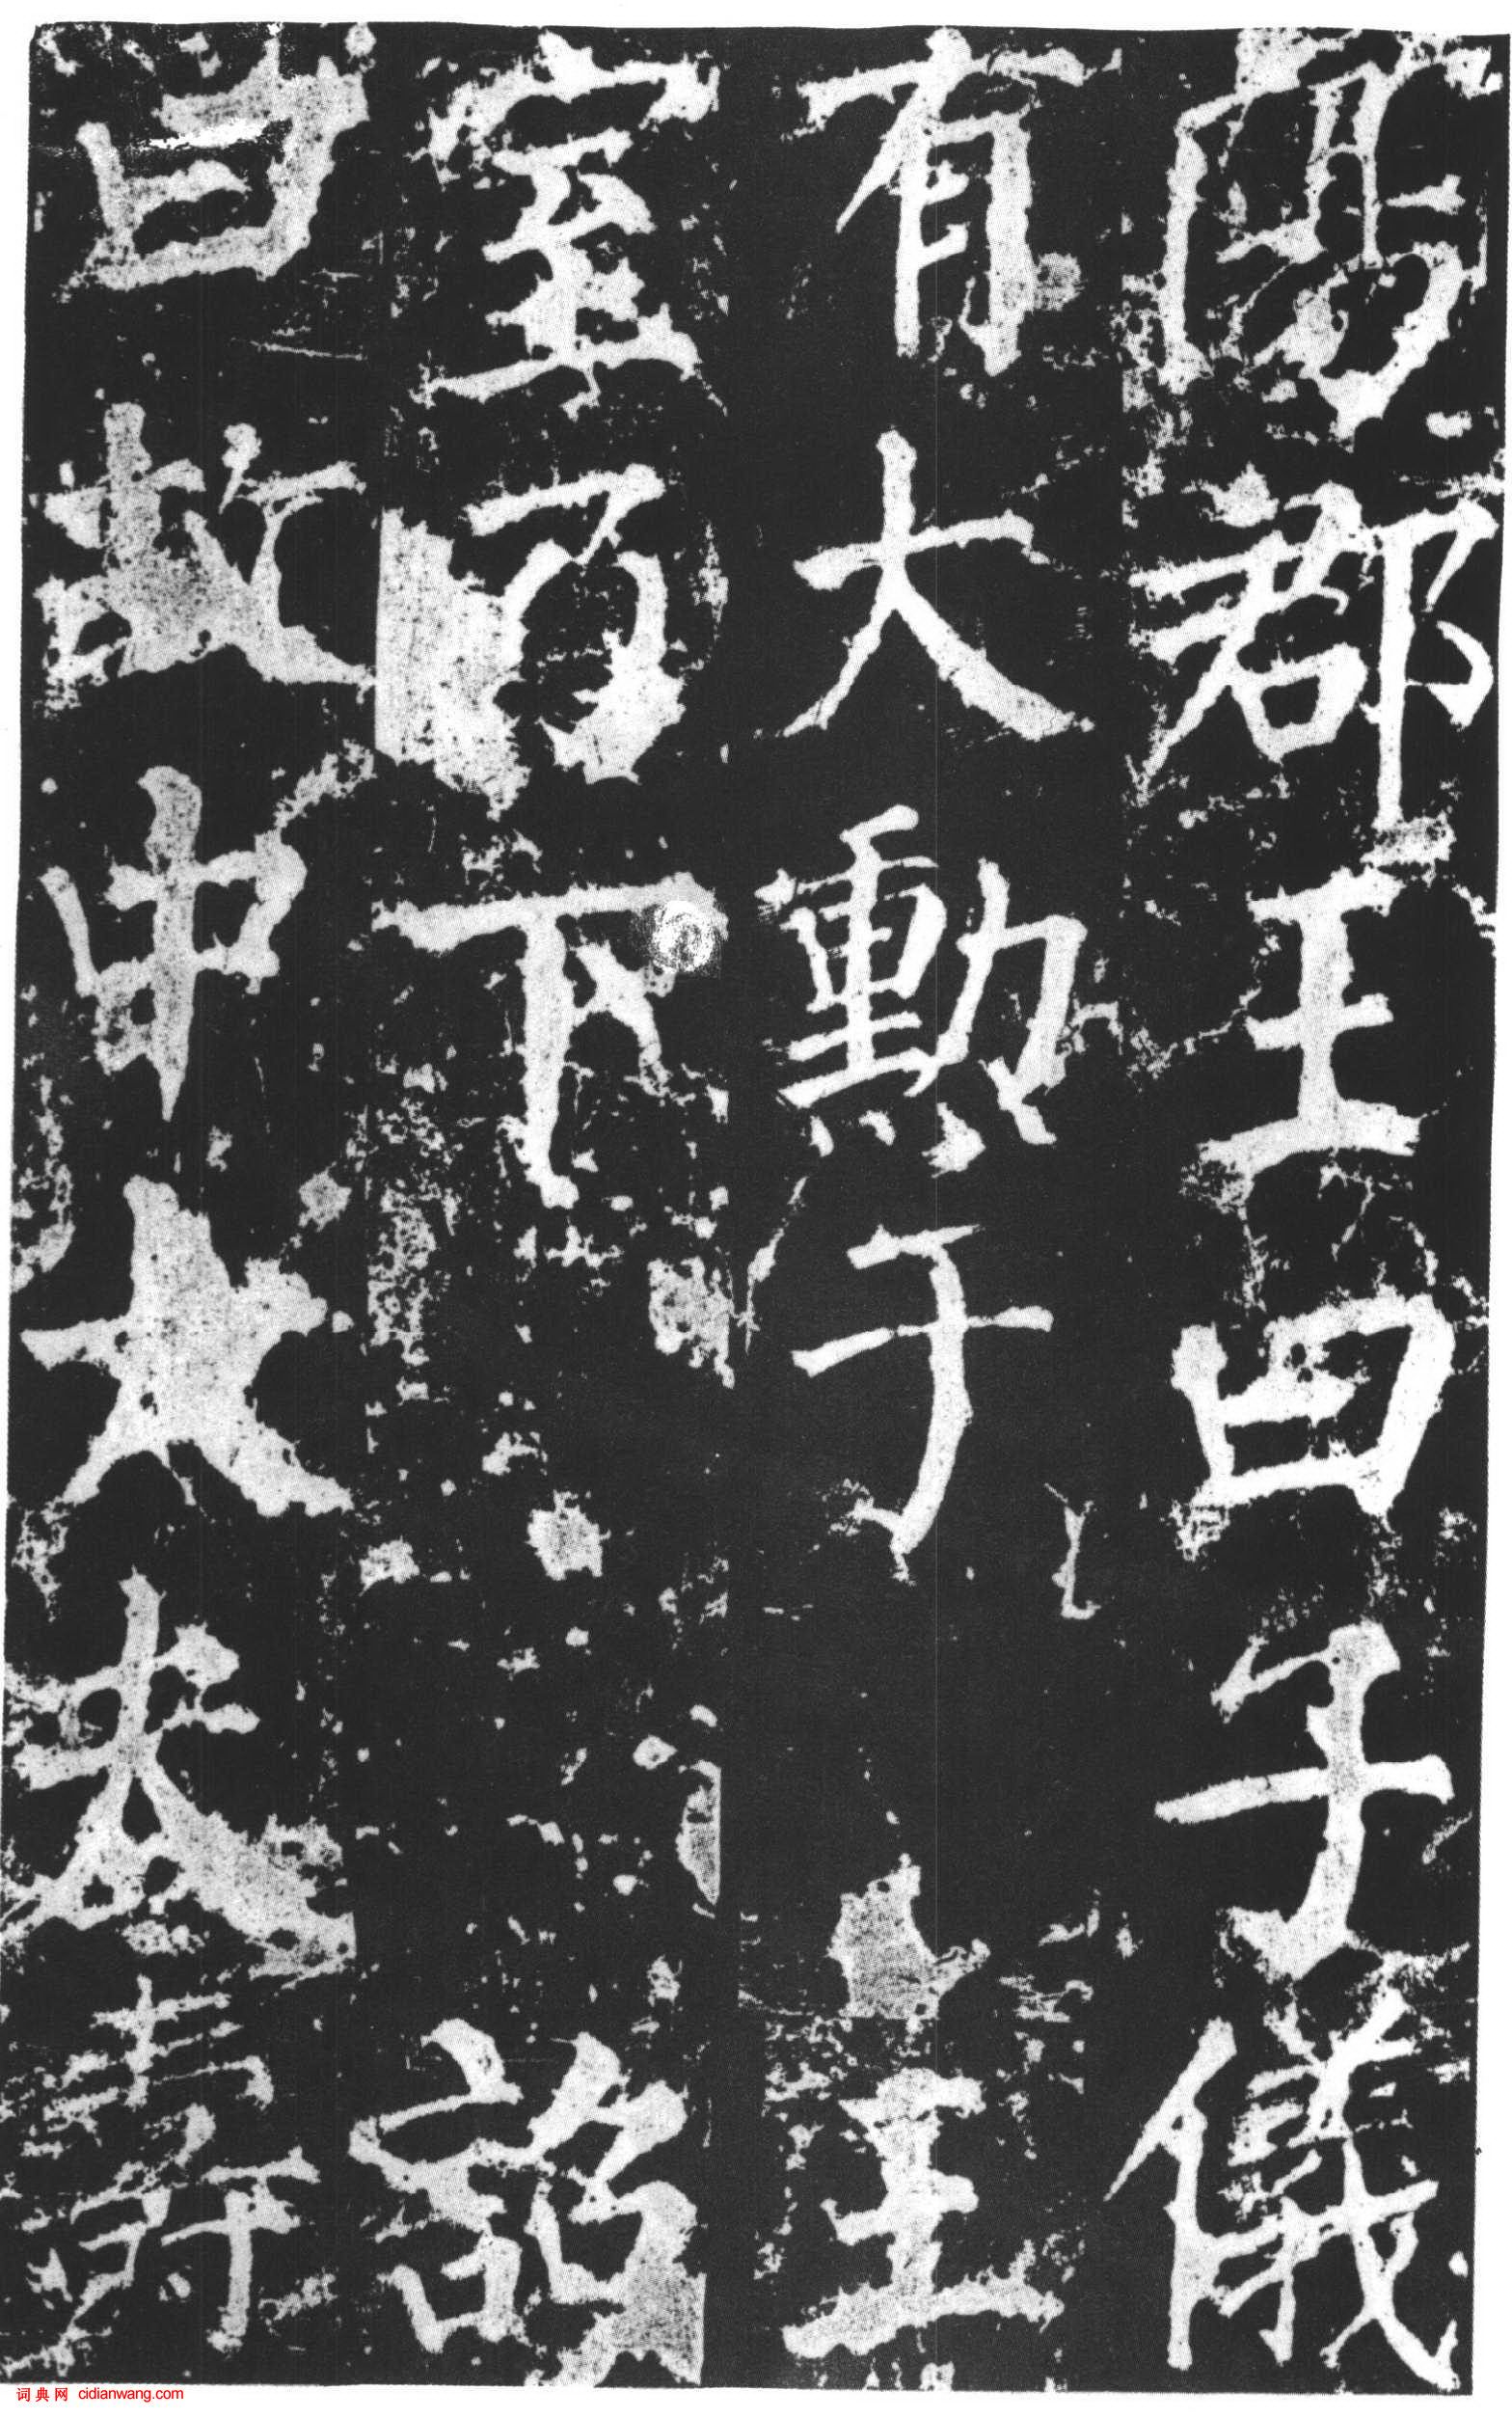 陽郡王曰子儀
有大勳于王
室乃下詔
曰故中大夫壽
词典网 cidianwang.com